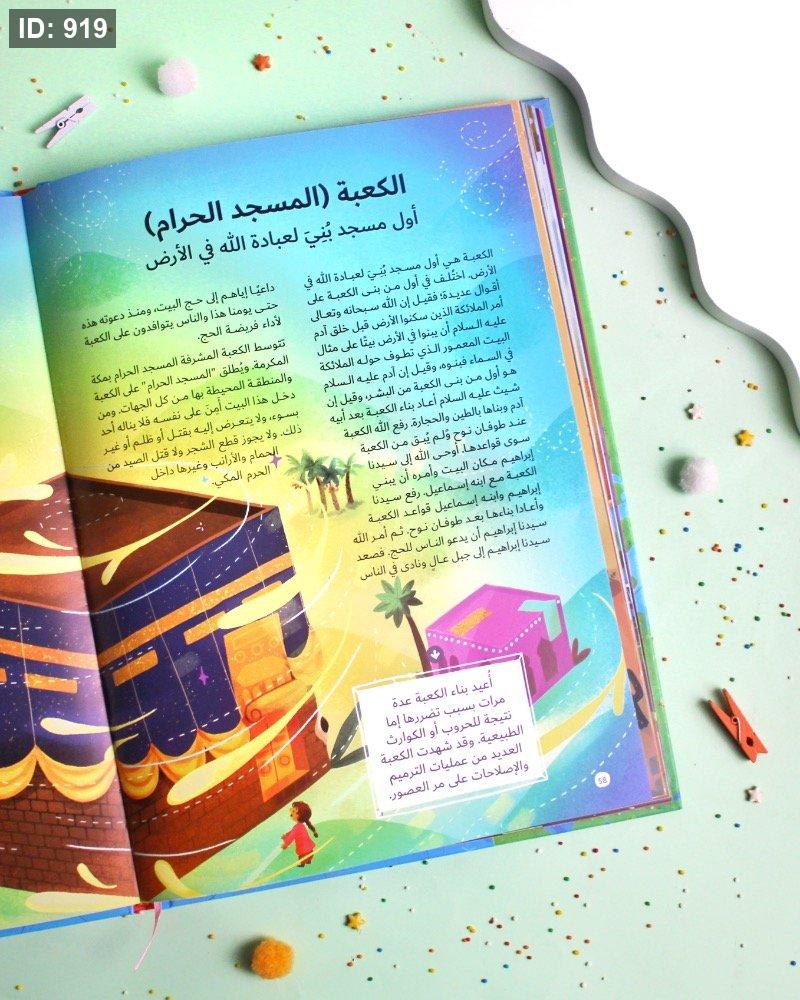 ID: 919
الكعبة (المسجد الحرام)
أول مسجد بُنِيَ لعبادة الله في الأرض
الكعبة هي أول مسجد بُنِيَ لعبادة الله في
الأرض. اختُلف في أول من بنى الكعبة على
أقوال عديدة؛ فقيل إن الله سبحانه وتعالى
أمر الملائكة الذين سكنوا الأرض قبل خلق آدم
عليه السلام أن يبنوا في الأرض بيتًا على مثال
البيت المعمور الذي تطوف حوله الملائكة
في السماء فبنوه، وقيل إن آدم عليه السلام
هو أول من بنى الكعبة من البشر، وقيل إن
شيث عليه السلام أعاد بناء الكعبة بعد أبيه
آدم وبناها بالطين والحجارة. رفع الله الكعبة
عند طوفان نوح وَلم يُبقِ من الكعبة
سوى قواعدها. أوحى الله إلى سيدنا
إبراهيم مكان البيت وأمره أن يبني
الكعبة مع ابنه إسماعيل. رفع سيدنا
إبراهيم وابنه إسماعيل قواعد الكعبة
وأعادا بناءها بعد طوفان نوح. ثم أمر الله
سيدنا إبراهيم أن يدعو الناس للحج. فصعد
سيدنا إبراهيم إلى جبل عالٍ ونادى في الناس
داعيًا إياهم إلى حج البيت، ومنذ دعوته هذه
حتى يومنا هذا والناس يتوافدون على الكعبة
لأداء فريضة الحج.
تتوسط الكعبة المشرفة المسجد الحرام بمكة
المكرمة. ويُطلق "المسجد الحرام" على الكعبة
والمنطقة المحيطة بها من كل الجهات. ومن
دخل هذا البيت أَمِنَ على نفسه فلا يناله أحد
بسوء، ولا يتعرض إليه بقتل أو ظلم أو غير
ذلك. ولا يجوز قطع الشجر ولا قتل الصيد من
الحمام والأرانب وغيرها داخل
الحرم المكي.
أعيد بناء الكعبة عدة
مرات بسبب تضررها إما
نتيجة للحروب أو الكوارث
الطبيعية. وقد شهدت الكعبة
العديد من عمليات الترميم
والإصلاحات على مر العصور.
58